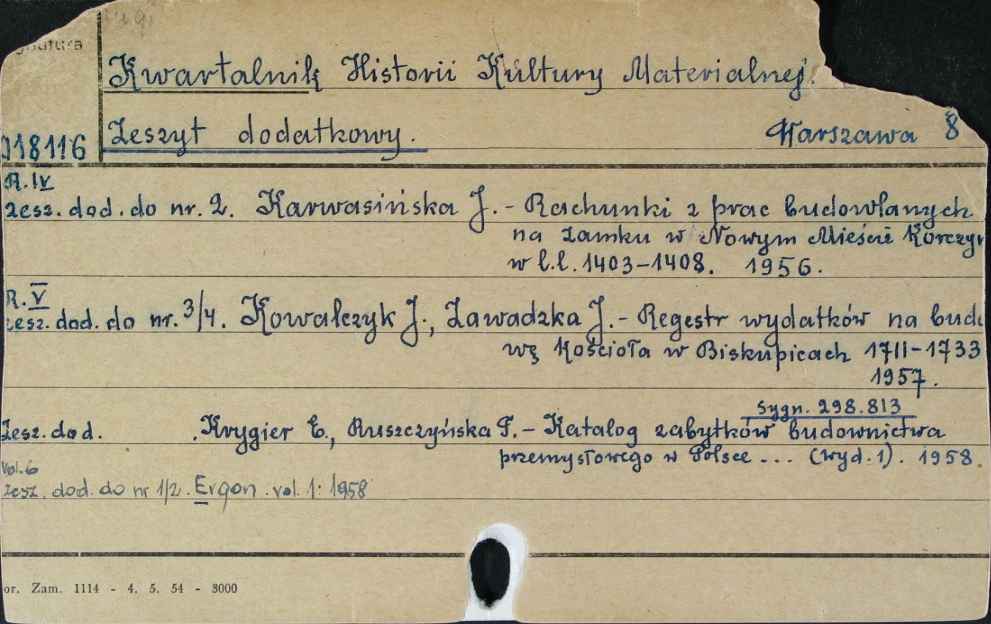 Kwartalnik Historii Kultury Materialnej.
Zeszyt dodatkowy. Warszawa 8
018116
R. IV
zesz. dod. do nr. 2. Karwasińska J. - Rachunki z prac budowlanych
na zamku w Nowym Mieście Korczyn
w l.l. 1403-1408. 1956.
R. V
zesz. dod. do nr. 3/4. Kowalczyk J., Zawadzka J. - Regestr wydatków na budo
wę Kościoła w Biskupicach 1711-1733
1957.
Sygn. 298.813
Zesz. dod. Krygier E., Ruszczyńska T. - Katalog zabytków budownictwa
przemysłowego w Polsce ... (wyd. 1). 1958.
Vol. 6
zesz. dod. do nr 1/2. Ergon. vol. 1: 1958
or. Zam. 1114 - 4. 5. 54 - 3000